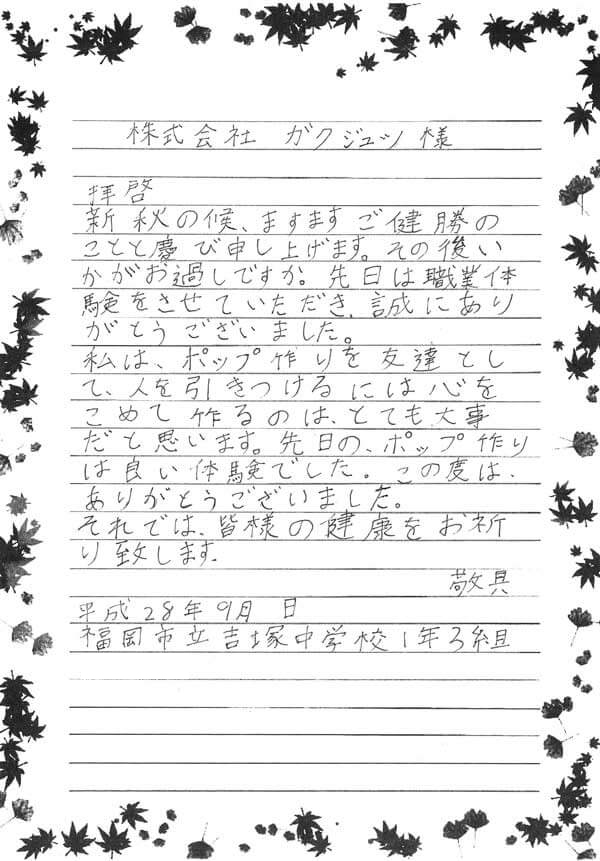 株式会社 ガクジュツ 様
拝啓
新秋の候、ますますご健勝の
ことと慶び申し上げます。その後い
かがお過しですか。先日は職業体
験をさせていただき、誠にあり
がとうございました。
私は、ポップ作りを友達とし
て、人を引きつけるには心を
こめて作るのは、とても大事
だと思います。先日の、ポップ作り
は良い体験でした。この度は、
ありがとうございました。
それでは、皆様の健康をお祈
り致します。
敬具
平成28年9月 日
福岡市立吉塚中学校1年3組